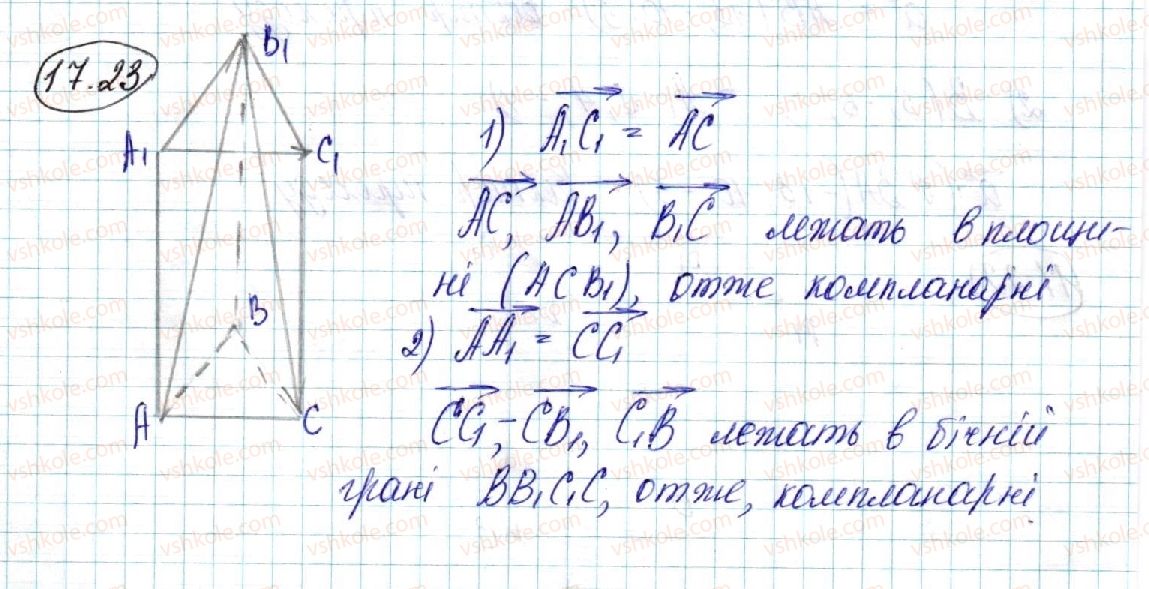 17.23
B₁
A₁
C₁
B
A
C
1) A₁C₁ = AC
AC, AB₁, B₁C лежать в площи-
ні (ACB₁), отже компланарні
2) AA₁ = CC₁
CC₁, CB₁, C₁B лежать в бічній
грані BB₁C₁C, отже, компланарні
vshkole.com